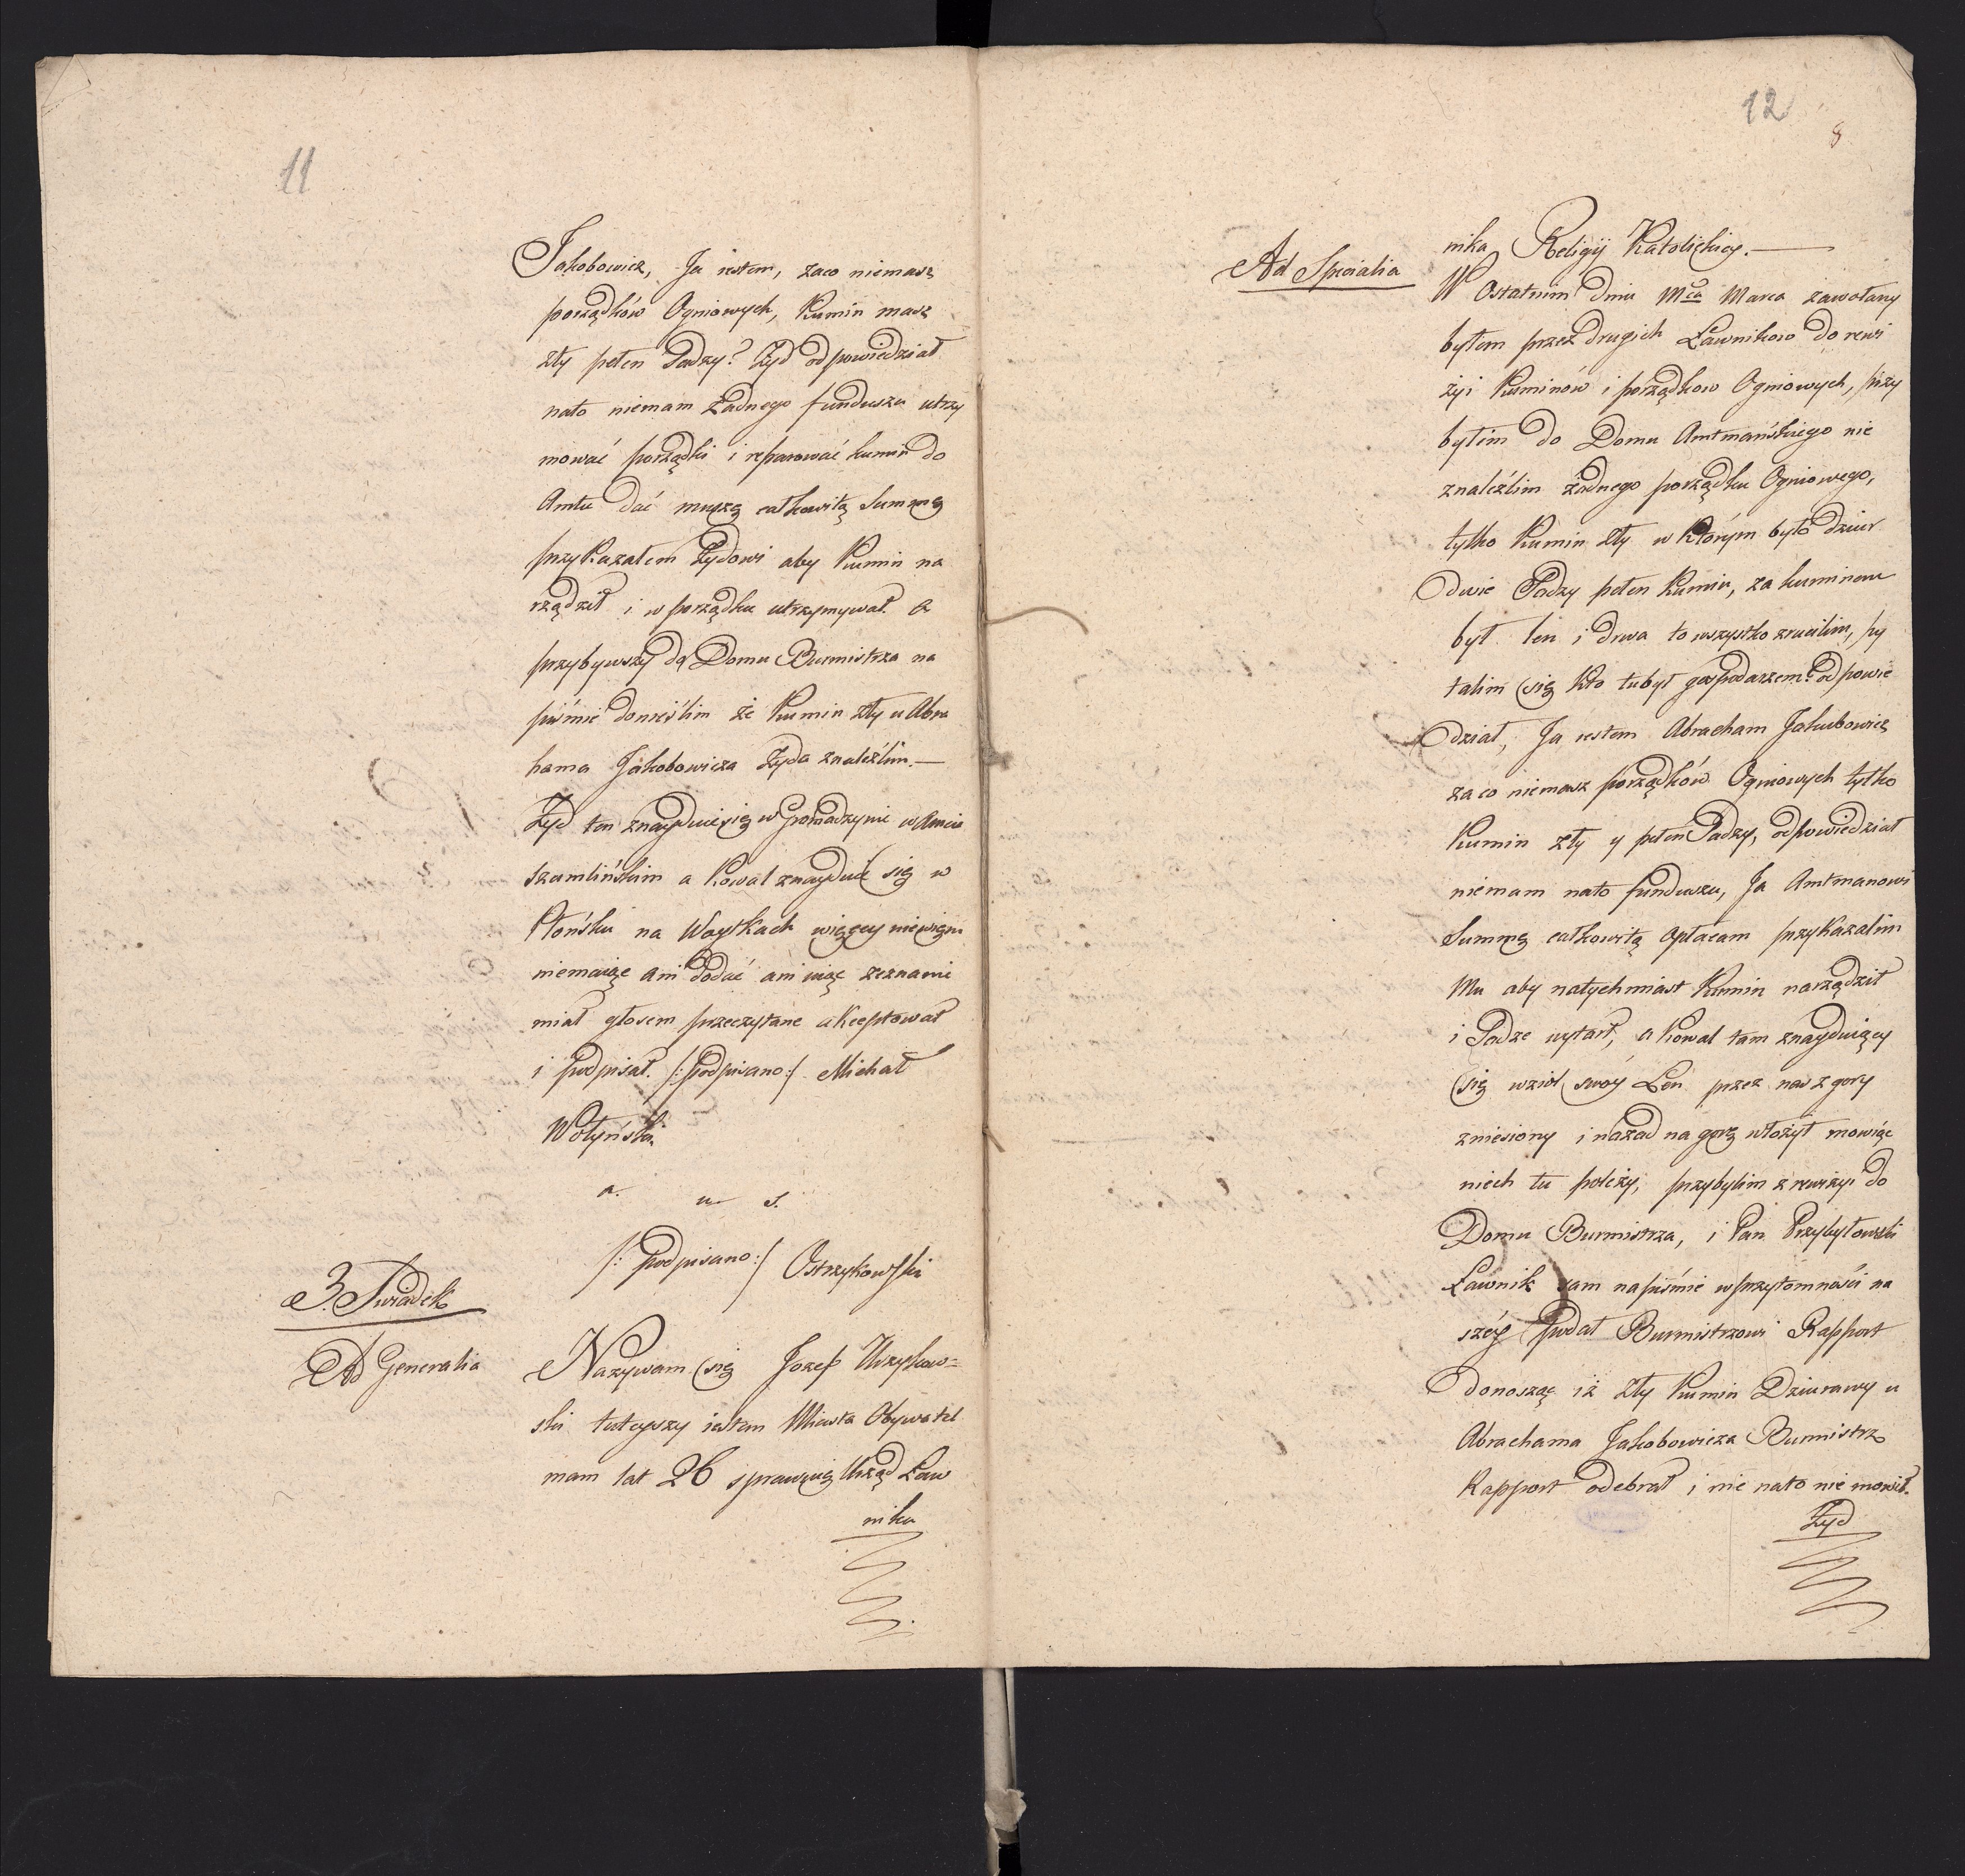 11
Jakobowicz, Ja iestem, zaco niemasz
porządków Ogniowych, Kumin masz
zły pełen Sadzy? Żyd odpowiedział
nato niemam żadnego funduszu utrzy
mować porządki i reparować kumin do
Amtu dać muszę całkowitą Summę
przykazałem Żydowi aby Kumin na
rządził i w porządku utrzymywał. a
przybywszy do Domu Burmistrza na
piśmie donieślim że Kumin zły u Abra
hama Jakobowicza Żyda znaleźlim.—
Żyd ten znayduie się w Gromadzynie w Amcie
szumlińskim a Kowal znayduie się w
Płońsku na Waytkach więcey niewiem
niemaiąc ani dodać ani uiąć zeznanie
miał głosem przeczytane akceptował
i podpisał. /: podpisano :/ Michał
Wołyński
a. u. s.
/: podpisano :/ Ostrzykowski
3. Swiadek
Ad Generalia
Nazywam się Jozef
ski tuteyszy iestem Miasta Obywatel
mam lat 26 sprawuię Urząd Ław
nika
12
8
nika Religij Katolickiey.—
Ad Specialia
W Ostatnim dniu Mca Marca zawołany
byłem przez drugich Ławnikow do rewi
zyi Kuminów i porządkow Ogniowych, przy
bylim do Domu Amtmańskiego nie
znaleźlim żadnego porządku Ogniowego,
tylko Kumin zły w którym było dziur
dwie Sadzy pełen Kumin, za kuminem
był len i drwa to wszystko zrucilim, py
talim się kto tu był gospodarzem? odpowie
dział, Ja iestem Abracham Jakubowicz
za co niemasz porządków Ogniowych tylko
Kumin zły y pełen Sadzy, odpowiedział
niemam nato funduszu, Ja Amtmanowi
Summę całkowitą opłacam przykazalim
Mu aby natychmiast Kumin narządził
i Sadze wytarł, a Kowal tam znayduiący
się wziol swoy Len przez nas z gory
zniesiony i nazad na gorę włożył mowiąc
niech tu poleży, przybylim z rewizyi do
Domu Burmistrza, i Pan Przybyłowski
Ławnik sam napiśmie w przytomności na
széy podał Burmistrzowi Rapport
donosząc iż zły Kumin Dziurawy u
Abrachama Jakobowicza Burmistrz
Rapport odebrał i nic nato nie mowił.
Żyd